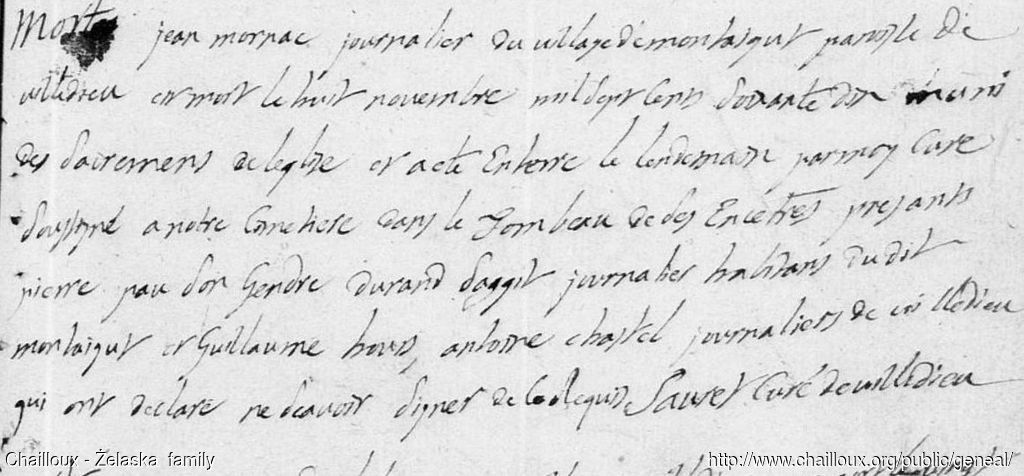 Mort jean mornac journalier du village de montaigut paroisse de
villedieu est mort le huit novembre mil sept cens soixante dix muni
des sacremens de leglise et a ete Enterre le lendemain par moy Cure
soussigné a notre Cimetiere dans le Tombeau de ses Encetres presants
pierre pau son Gendre durand saggit journalier habitans dudit
montaigut et Guillaume hours, antoine chastel journaliers de villedieu
qui ont declare ne scavoir signer de ce Requis Sauret Curé de villedieu
Chailloux - Želaska family
http://www.chailloux.org/public/geneal/